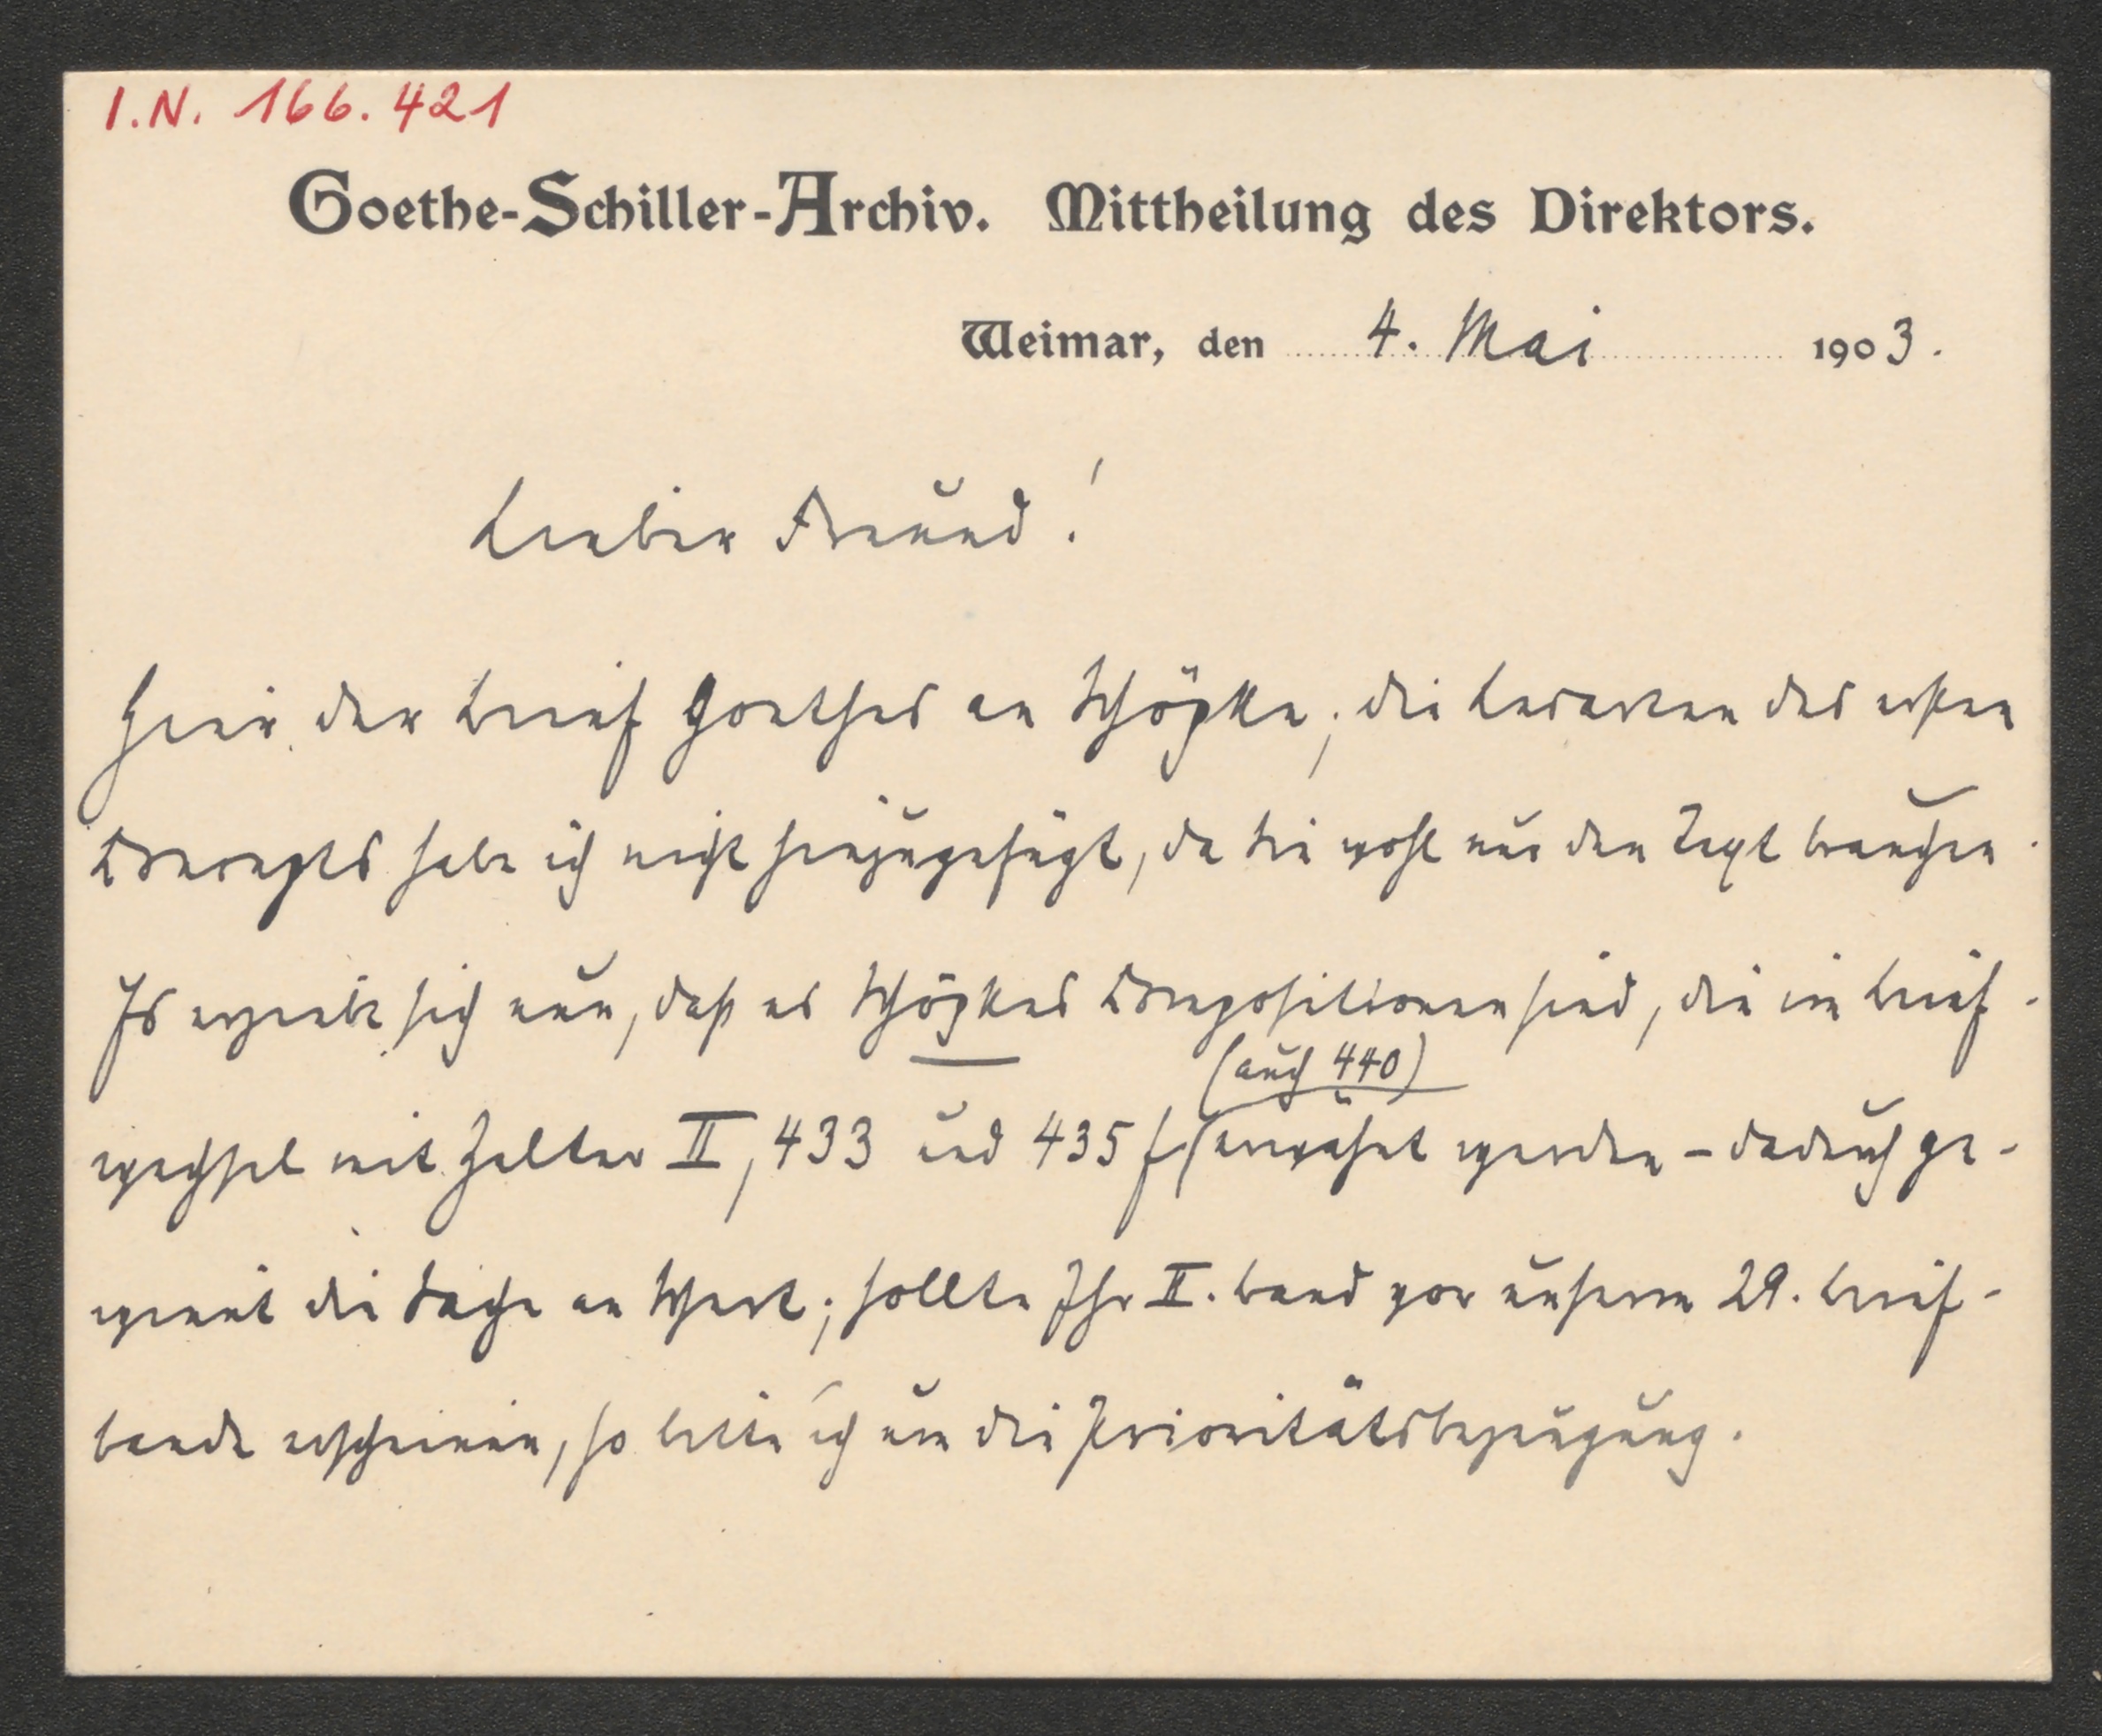 I.N. 166.421
Goethe-Schiller-Archiv. Mittheilung des Direktors.
Weimar, den 4. Mai 1903.
Lieber Freund!
Hier der Brief Goethes an Schöpke; die Lesarten des ersten
Concepts habe ich nicht hinzugefügt, da Sie wohl nur den Text brauchen.
Es ergiebt sich nun, daß es Schöpkes Compositionen sind, die im Brief-
(auch 440)
wechsel mit Zelter II, 433 und 435 f. erwähnt werden – dadurch ge-
winnt die Sache an Wert; sollte Ihr II. Band vor unserm 29. Brief-
bande erscheinen, so bitte ich um die Prioritätsbezeugung.